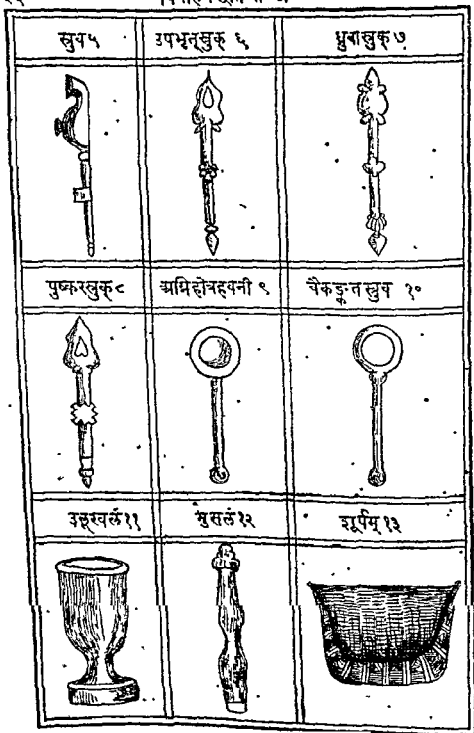 स्रुव ५ उपभृत्स्रुक् ६ ध्रुवास्रुक् ७
पुष्करस्रुक् ८ अग्निहोत्रहवनी ९ वैकङ्कतस्रुव १०
उलूखलं ११ मुसलं १२ शूर्पम् १३